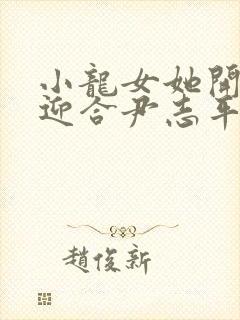 小龍女她開
迎合尹志平
趙俊新